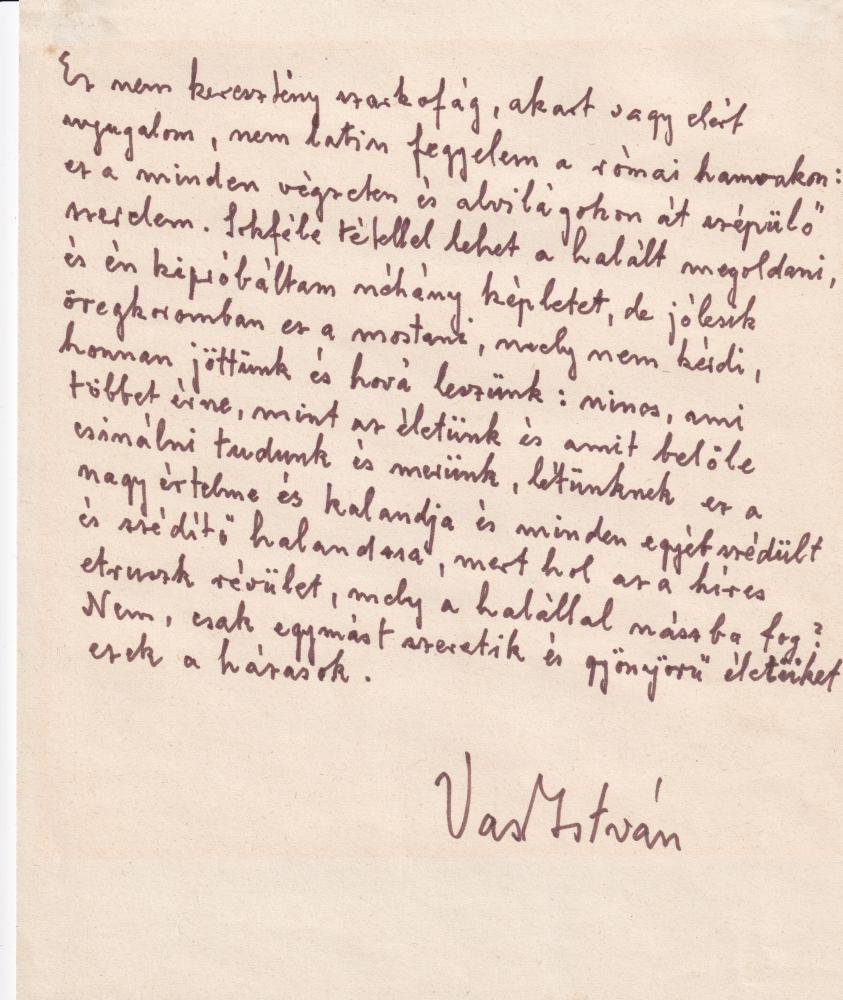 Ez nem keresztény szarkofág, akart vagy elért
nyugalom, nem latin fegyelem a római hamvakon:
ez a minden végzeten és alvilágokon át szépülő
szerelem. Sokféle tétellel lehet a halált megoldani,
és én kipróbáltam néhány képletet, de jólesik
öregkoromban ez a mostani, mely nem kérdi,
honnan jöttünk és hová leszünk: nincs, ami
többet érne, mint az életünk és amit belőle
csinálni tudunk és merünk, létünknek ez a
nagy értelme és kalandja és minden egyéb szédült
és szédítő halandzsa, mert hol az a híres
etruszk révület, mely a halállal nászba fog?
Nem, csak egymást szeretik és gyönyörű életüket
ezek a házasok.
Vas István